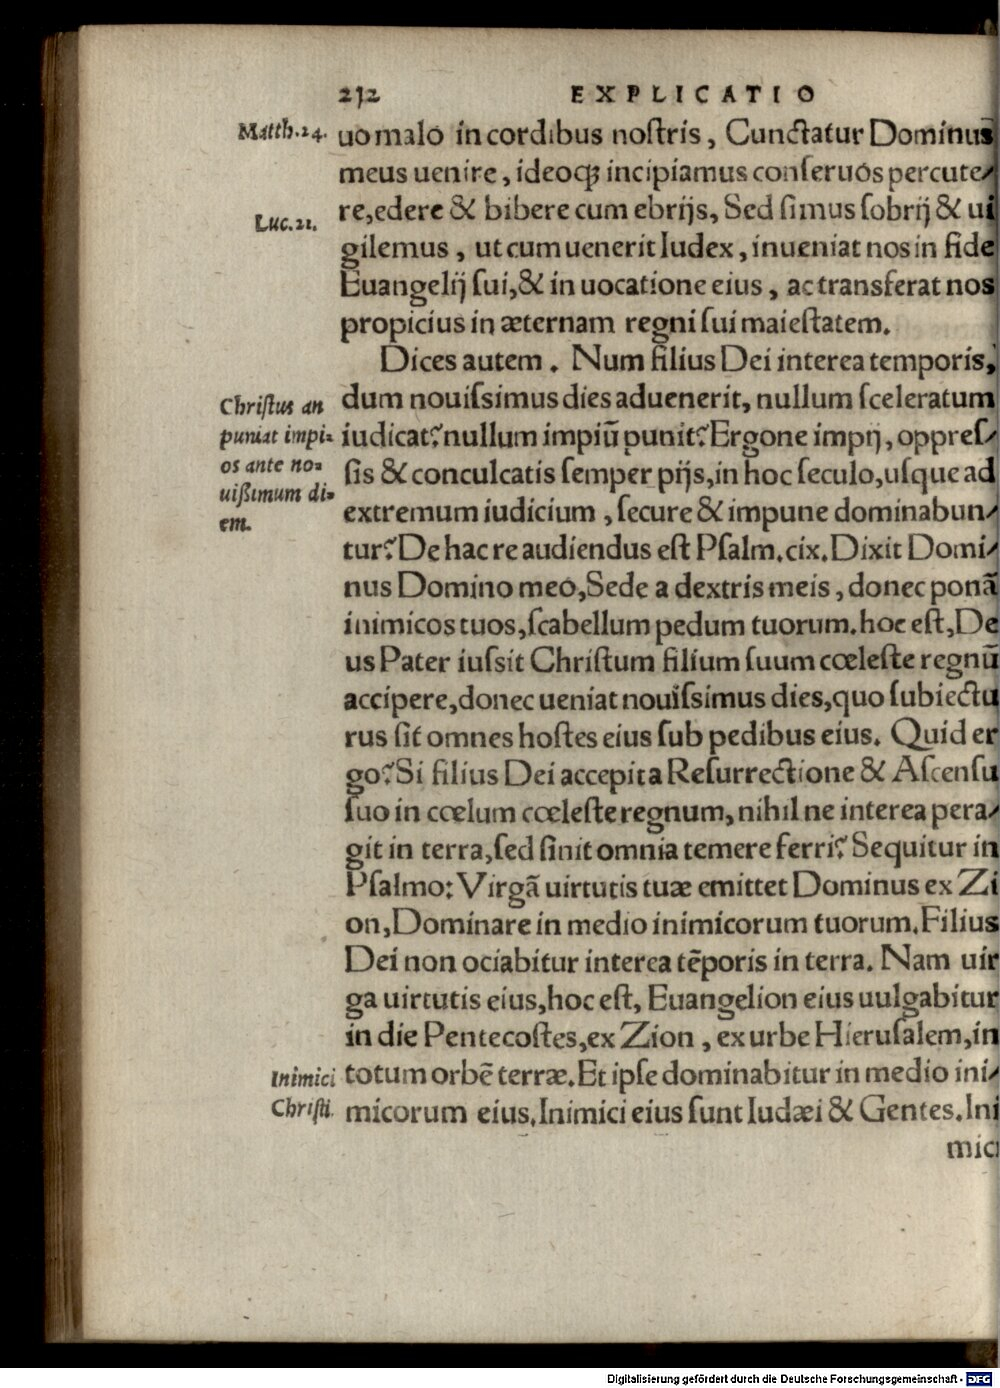 232 EXPLICATIO
Matth.24.
uo malo in cordibus noſtris, Cunctatur Dominus
meus uenire, ideoq́ꝫ incipiamus conſeruos percute⸗
Luc.21.
re, edere & bibere cum ebrijs, Sed ſimus ſobrij & ui
gilemus, ut cum uenerit Iudex, inueniat nos in fide
Euangelij ſui, & in uocatione eius, ac transferat nos
propicius in æternam regni ſui maieſtatem.
Dices autem. Num filius Dei interea temporis,
Chriſtus an
puniat impi⸗
os ante no⸗
uißimum di⸗
em.
dum nouiſsimus dies aduenerit, nullum ſceleratum
iudicat? nullum impiū punit? Ergone impij, oppreſ⸗
ſis & conculcatis ſemper pijs, in hoc ſeculo, uſque ad
extremum iudicium, ſecure & impune dominabun⸗
tur? De hac re audiendus eſt Pſalm.cix. Dixit Domi⸗
nus Domino meo, Sede a dextris meis, donec ponā
inimicos tuos, ſcabellum pedum tuorum. hoc eſt, De
us Pater iuſsit Chriſtum filium ſuum cœleſte regnū
accipere, donec ueniat nouiſsimus dies, quo ſubiectu
rus ſit omnes hoſtes eius ſub pedibus eius. Quid er
go? Si filius Dei accepit a Reſurrectione & Aſcenſu
ſuo in cœlum cœleſte regnum, nihil ne interea pera⸗
git in terra, ſed ſinit omnia temere ferri? Sequitur in
Pſalmo: Virgā uirtutis tuæ emittet Dominus ex Zi
on, Dominare in medio inimicorum tuorum. Filius
Dei non ociabitur interea tēporis in terra. Nam uir
ga uirtutis eius, hoc eſt, Euangelion eius uulgabitur
in die Pentecoſtes, ex Zion, ex urbe Hieruſalem, in
Inimici
Chriſti.
totum orbē terræ. Et ipſe dominabitur in medio ini⸗
micorum eius. Inimici eius ſunt Iudæi & Gentes. Ini
mici
Digitalisierung gefördert durch die Deutsche Forschungsgemeinschaft - DFG